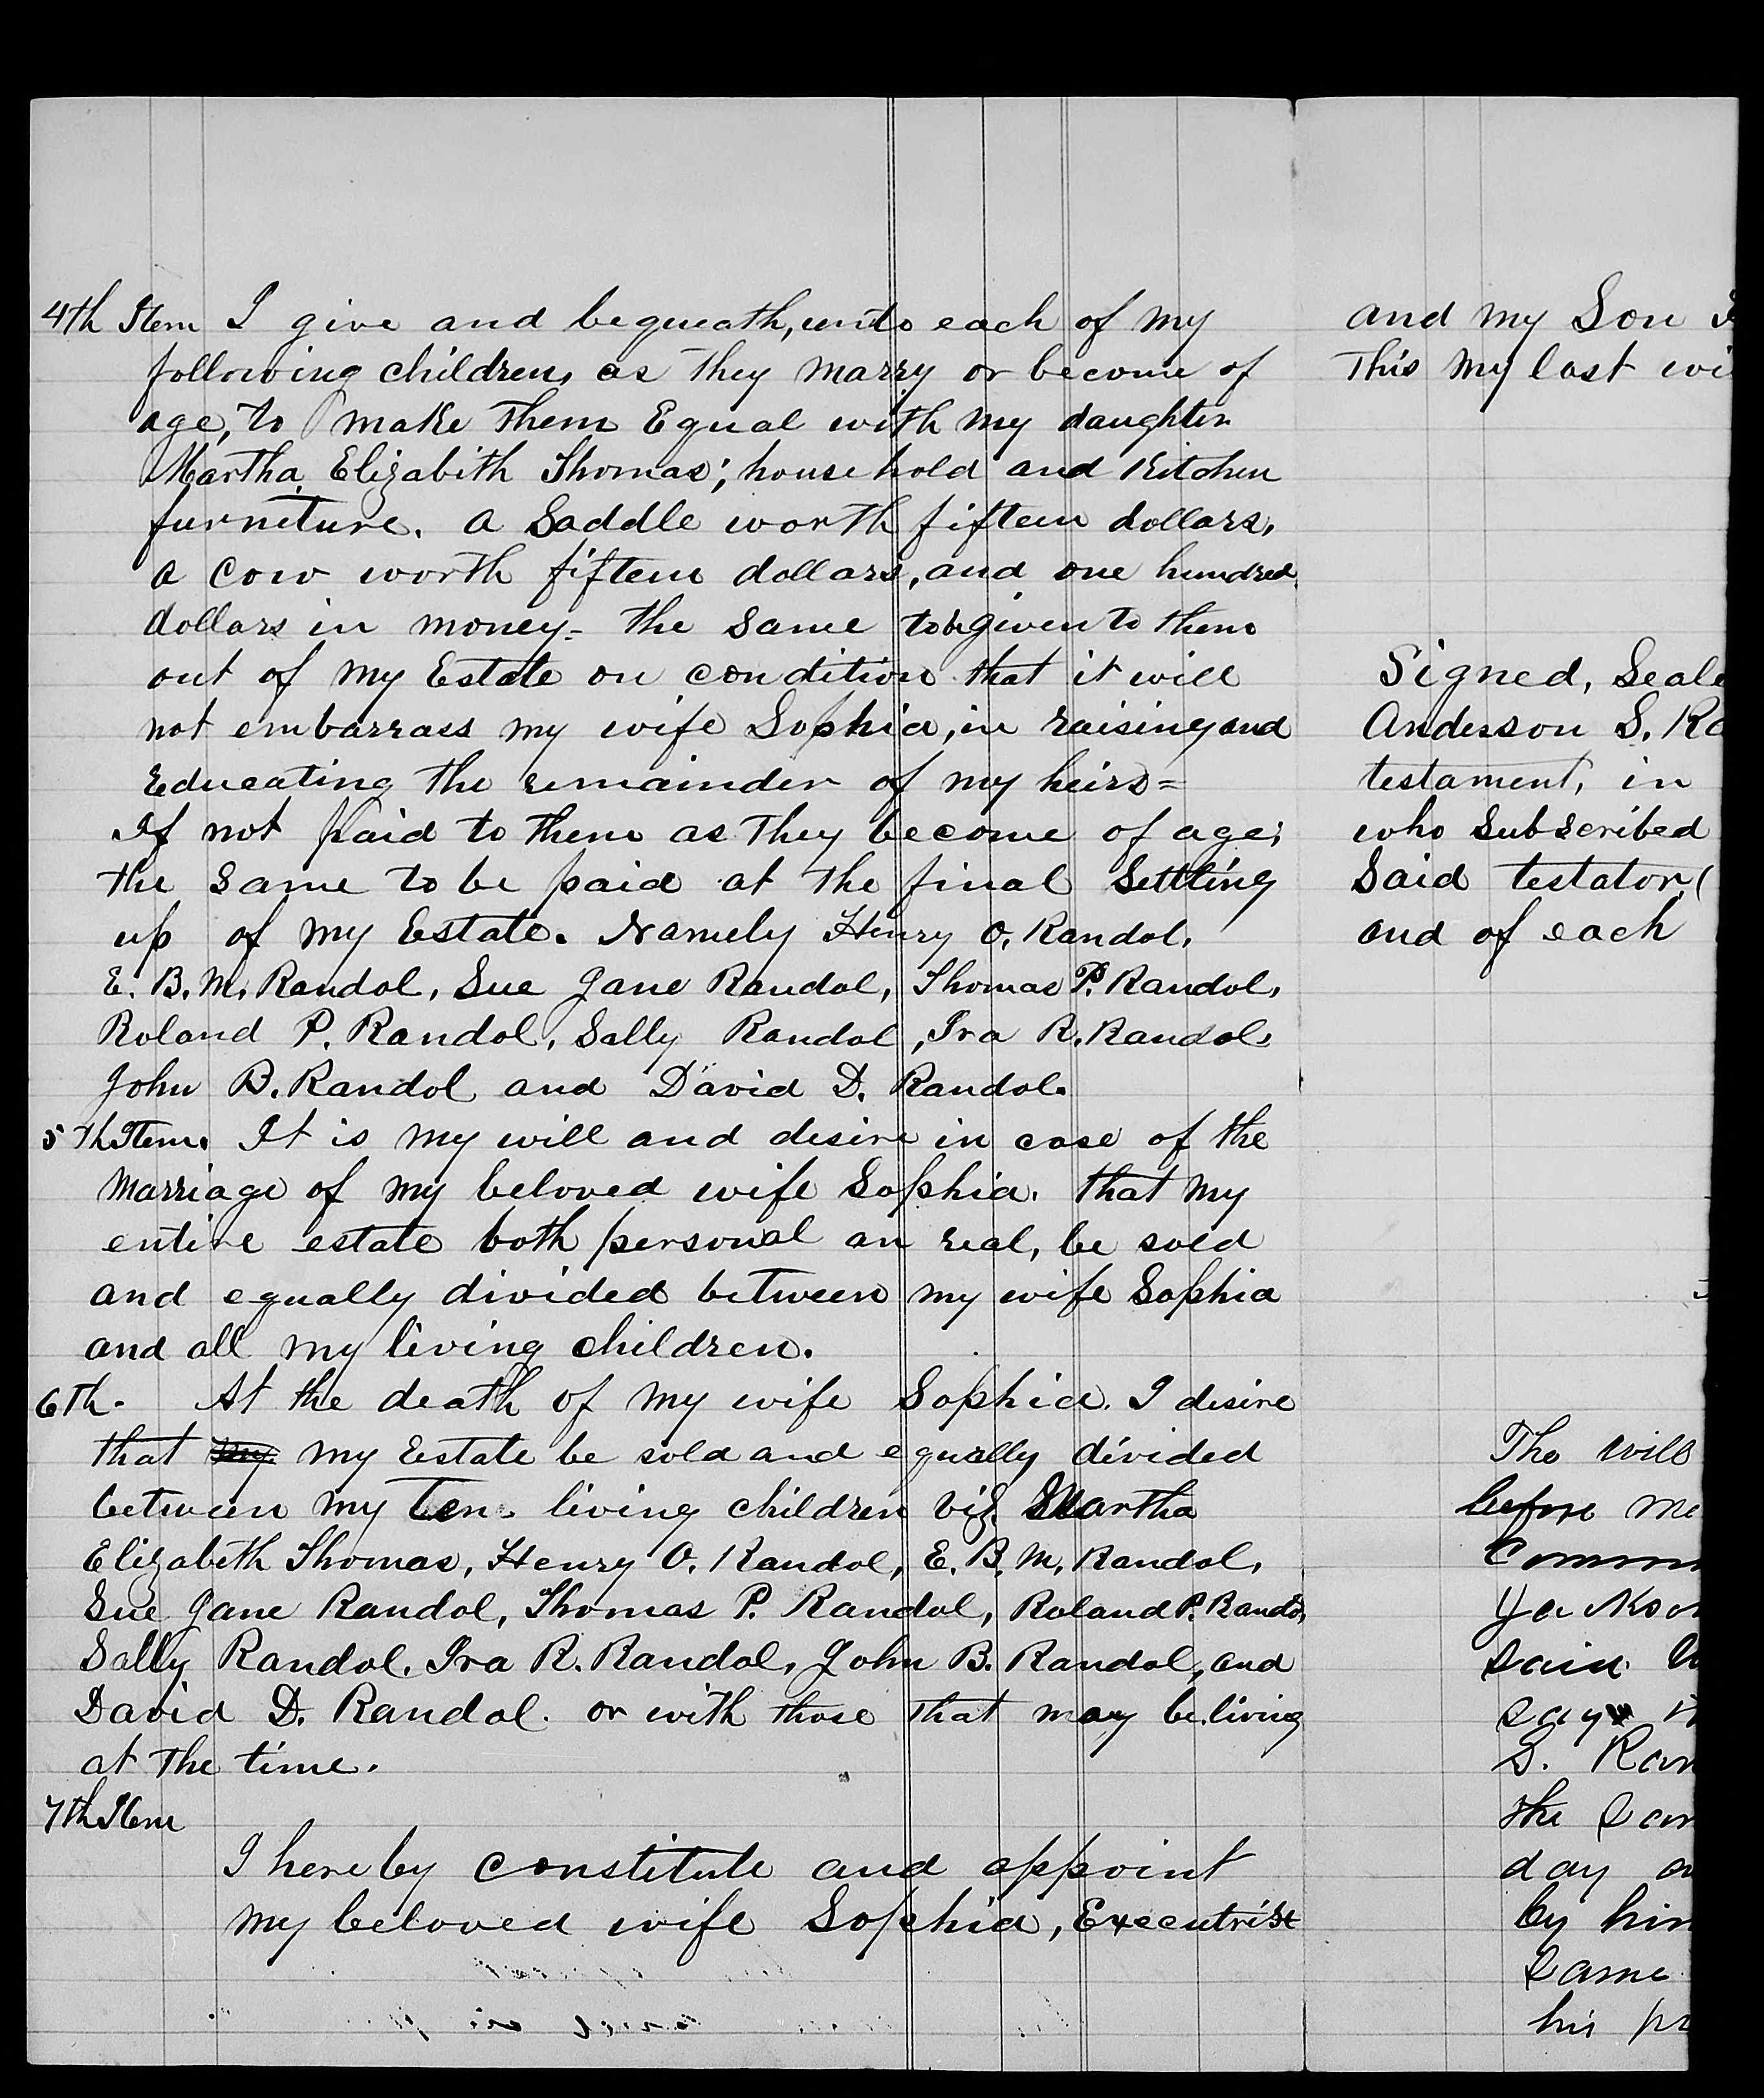 4th Item I give and bequeath, unto each of my
following children, as they marry or become of
age, to make them Equal with my daughter
Martha Elizabith Thomas; house hold and Kitchen
furniture. a Saddle worth fifteen dollars,
a Cow worth fifteen dollars, and one hundred
dollars in money- the same to be given to them
out of my Estate on condition that it will
not embarrass my wife Sophia, in raising and
Educating the remainder of my heirs=
If not paid to them as they become of age;
the same to be paid at the final Settling
up of my Estate. Namely Henry O. Randol,
E. B. M. Randol, Sue Jane Randol, Thomas P. Randol,
Roland P. Randol, Sally Randol, Ira R. Randol,
John B. Randol and David D. Randol.
5 th Item. It is my will and desire in case of the
Marriage of my beloved wife Sophia. that my
entire estate both personal an real, be sold
and equally divided between my wife Sophia
and all my living children.
6th. At the death of my wife Sophia. I desire
that my my Estate be sold and equally divided
between my ten living children viz. Martha
Elizabeth Thomas, Henry O. Randol, E. B. M. Randol,
Sue Jane Randol, Thomas P. Randol, Roland P. Randol,
Sally Randol. Ira R. Randol, John B. Randol, and
David D. Randol. or with those that may be living
at the time.
7th Item
I hereby constitute and appoint
my beloved wife Sophia, Executrix
and my Son
This my last wi
Signed, Seale
Anderson S. Ra
testament, in
who subscribed
Said testator (
and of each
The will
before me
Comm
Jackson
said
say
S. Ran
the sam
day
by him
same
his pr